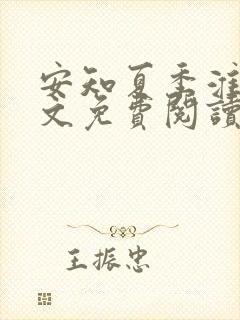 安知夏季淮
文免費閱讀
王振忠